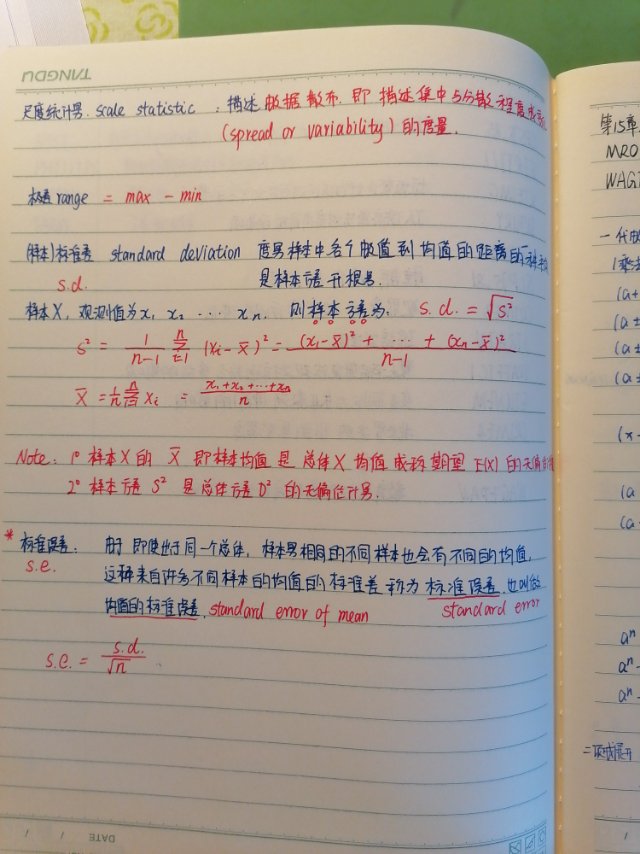 TANGDU
尺度统计量. scale statistic : 描述 数据 散布. 即 描述 集中 与分散 程度 或
(spread or variability) 的度量.
极差 range = max - min
(样本)标准差 standard deviation 度量样本中各个数值到均值的距离的一种
s.d. 是样本方差开根号.
样本X, 观测值为 x₁ x₂ ... xₙ. 则样本方差为: s.d. = √s²
s² = 1/(n-1) Σⁿᵢ₌₁ (xᵢ-x̄)² = ((x₁-x̄)² + ... + (xₙ-x̄)²)/(n-1)
x̄ = 1/n Σ xᵢ = (x₁+x₂+...+xₙ)/n
Note: 1° 样本X的 x̄ 即样本均值 是 总体X 均值 或称 期望 E(X) 的无偏
2° 样本方差 S² 是总体方差 D² 的无偏估计量.
* 标准误差: 由于 即使出于同一个总体, 样本量相同的不同样本也会有不同的均值,
s.e. 这种来自许多不同样本的均值的标准差 称为 标准误差. 也叫做
均值的标准误差. standard error of mean standard error
s.e. = s.d./√n
DATE / /
第15章
MRO
WAG
一
(a+
(a±
(a±
(a±
(x-
(a
(a
aⁿ
aⁿ-
aⁿ-
二项式展开